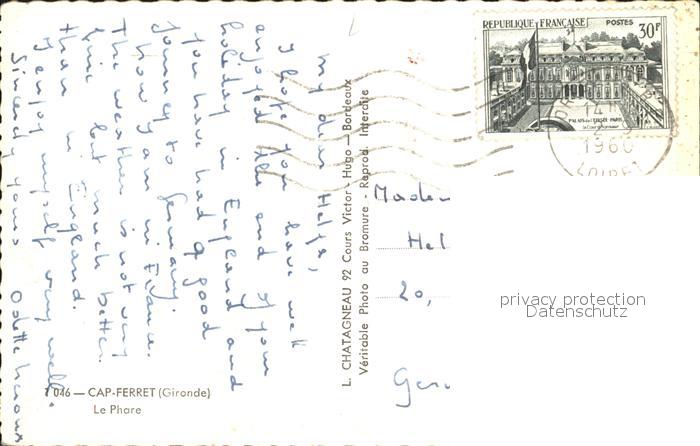 My dear Helga,
I hope you have well
enjoyed the end of your
holiday in England and
you have had a good
journey to Germany.
Now I am in France.
The weather is not very
fine but much better
than in England.
I enjoy myself very well.
Sincerely yours Odette
1046 — CAP-FERRET (Gironde)
Le Phare
L. CHATAGNEAU 92 Cours Victor - Hugo — Bordeaux
Véritable Photo au Bromure - Reprod. Interdite
REPUBLIQUE FRANÇAISE POSTES
30F
PALAIS DE L'ELYSÉE PARIS
14
1960
LOIRET
Madem
Hel
20,
Ger
privacy protection
Datenschutz